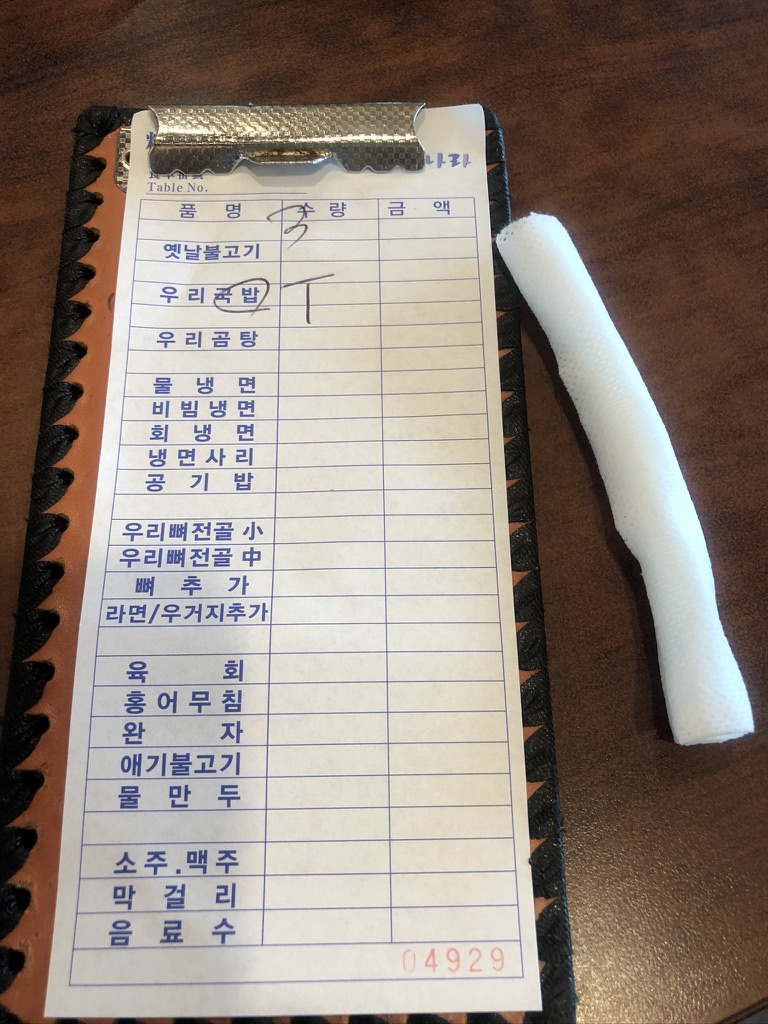 나라
Table No.
품 명 수 량 금 액
3
옛날불고기
우리국밥 T
우리곰탕
물 냉 면
비빔냉면
회 냉 면
냉면사리
공 기 밥
우리뼈전골 小
우리뼈전골 中
뼈 추 가
라면/우거지추가
육 회
홍어무침
완 자
애기불고기
물 만 두
소주.맥주
막 걸 리
음 료 수
04929